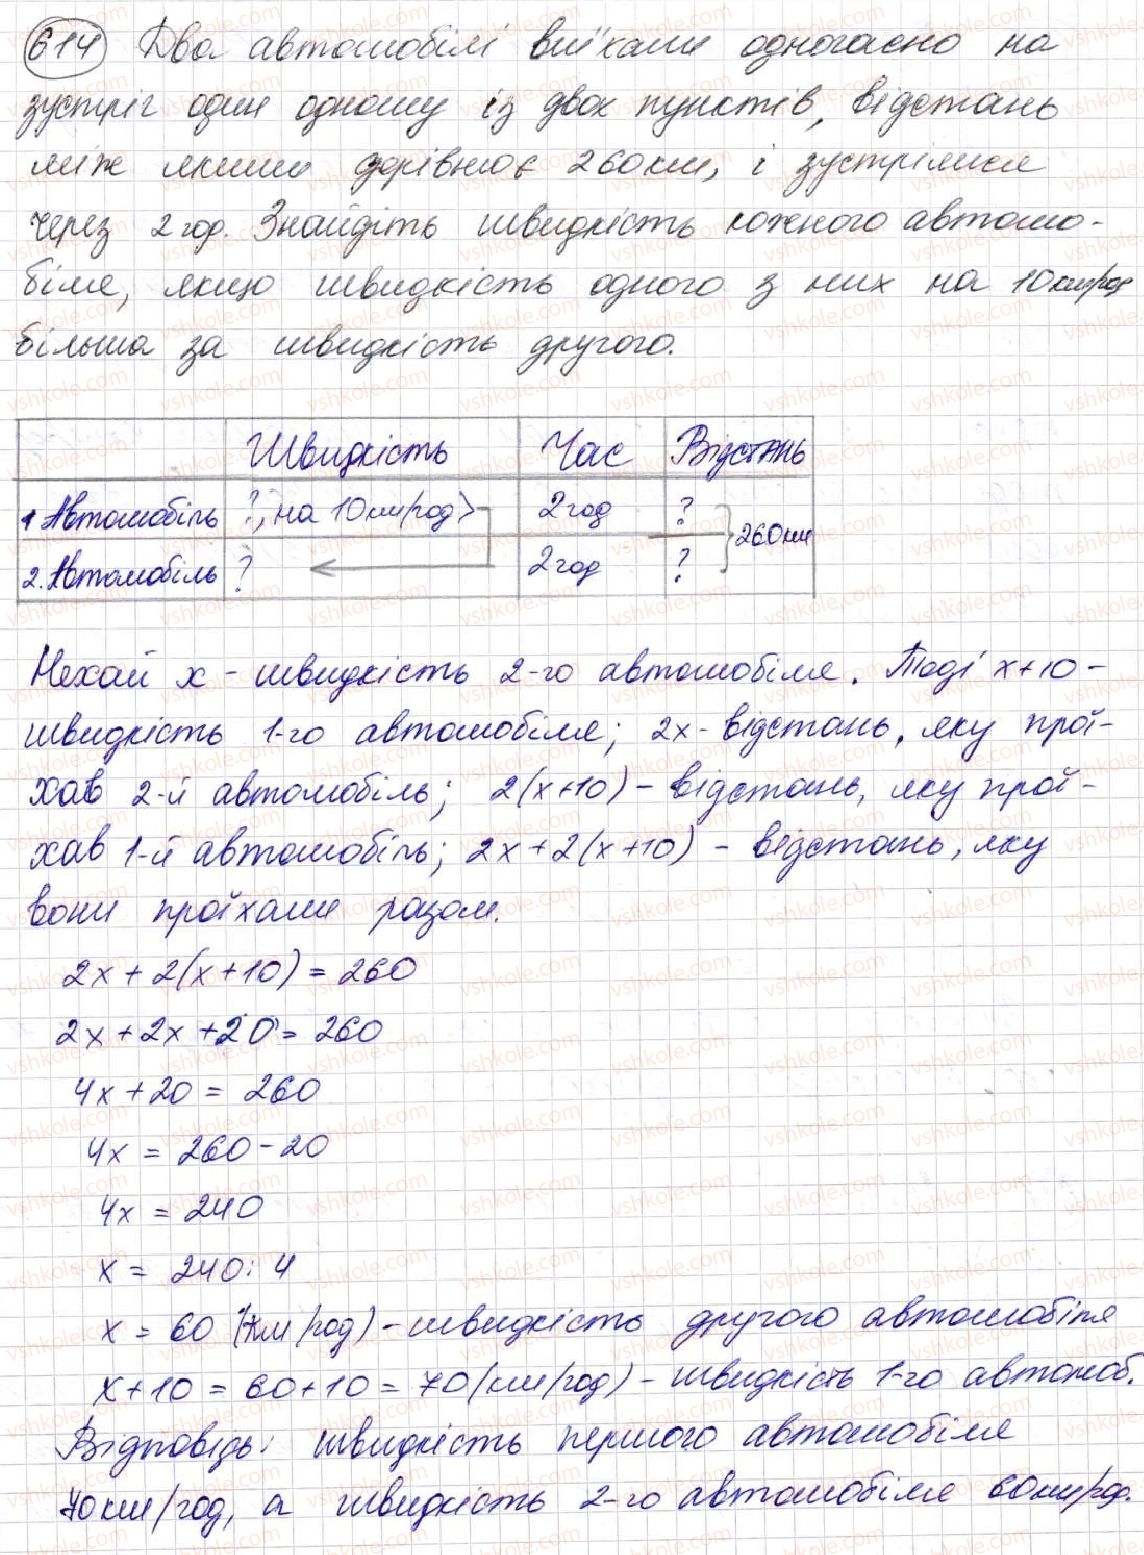 614 Два автомобілі виїхали одночасно на
зустріч один одному із двох пунктів, відстань
між якими дорівнює 260 км, і зустрілися
через 2 год. Знайдіть швидкість кожного автомо-
біля, якщо швидкість одного з них на 10 км/год
більша за швидкість другого.
Швидкість Час Відстань
1 Автомобіль ?, на 10 км/год > 2 год ?
260 км
2. Автомобіль ? 2 год ?
Нехай x - швидкість 2-го автомобіля. Тоді x+10 -
швидкість 1-го автомобіля; 2x - відстань, яку прої-
хав 2-й автомобіль; 2(x+10) - відстань, яку прої-
хав 1-й автомобіль; 2x+2(x+10) - відстань, яку
вони проїхали разом.
2x + 2(x+10) = 260
2x + 2x + 20 = 260
4x + 20 = 260
4x = 260 - 20
4x = 240
x = 240 : 4
x = 60 (км/год) - швидкість другого автомобіля
x+10 = 60+10 = 70 (км/год) - швидкість 1-го автомоб.
Відповідь: швидкість першого автомобіля
70 км/год, а швидкість 2-го автомобіля 60 км/год.